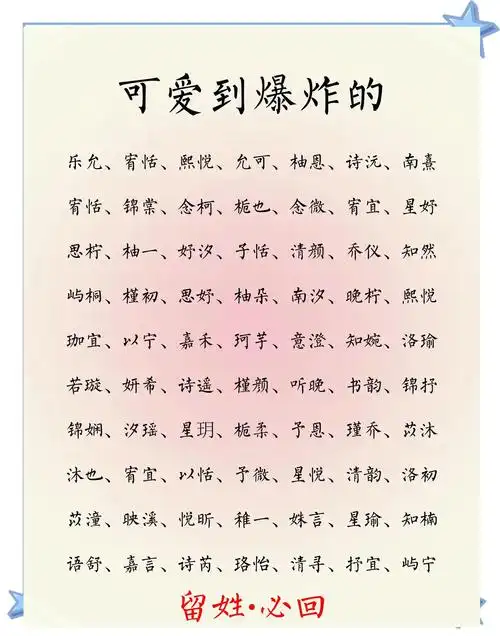 可爱到爆炸的
乐允、宥恬、熙悦、允可、柚恩、诗沅、南熹
宥恬、锦棠、念柯、栀也、念微、宥宜、星妤
思柠、柚一、妤汐、子恬、清颜、乔仪、知然
屿桐、槿初、思妤、柚朵、南汐、晚柠、熙悦
珈宜、以宁、嘉禾、珂芋、意澄、知婉、洛瑜
若璇、妍希、诗遥、槿颜、听晚、书韵、锦抒
锦娴、汐瑶、星玥、栀柔、予恩、瑾乔、苡沐
沐也、宥宜、以恬、予微、星悦、清韵、洛初
苡潼、映溪、悦昕、稚一、姝言、星瑜、知楠
语舒、嘉言、诗芮、珞怡、清寻、抒宜、屿宁
留姓·必回